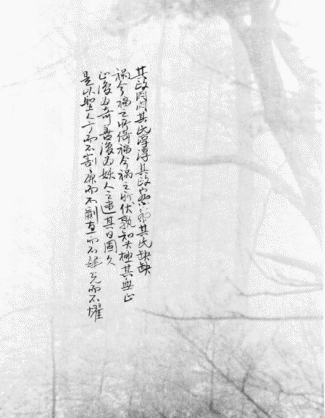 其政悶悶其民淳淳其政察察其民缺缺
禍兮福之所倚福兮禍之所伏孰知其極其無止
正復為奇善復為妖人之迷其日固久
是以聖人方而不割廉而不劌直而不肆光而不耀